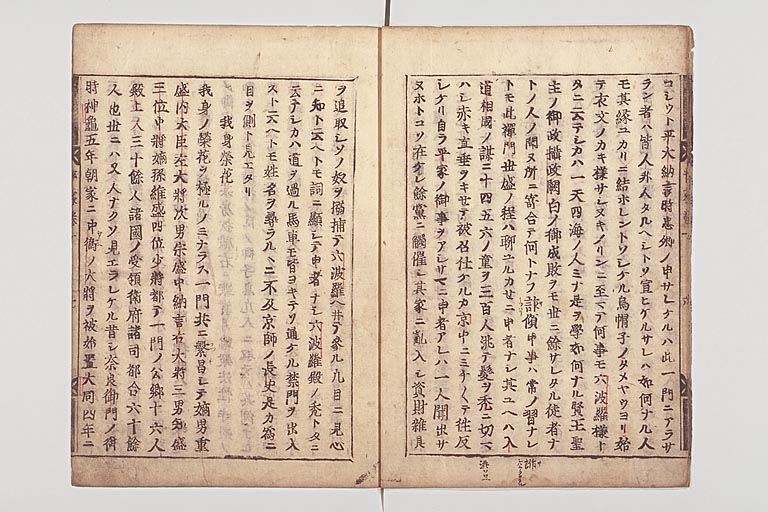 コシウト平大納言時忠卿ノ申サレケルハ此一門ニアラサ
ラン者ハ皆人非人タルヘシトソ宣ヒケルサレハ如何ナル人
モ其縁ユカリニ結ホレントソシケル烏帽子ノタメヤウヨリ始
テ衣文ノカキ様サシヌキノリンニ至マテ何事モ六波羅様ト
タニ云テシカハ一天四海ノ人ミナ是ヲ學如何ナル賢王聖
主ノ御政攝政関白ノ御成敗ヲモ世ニ餘サレタル徒者ナ
トノ人ノ聞ヌ所ニ寄合テ何トナフ誹傾申事ハ常ノ習ナレ
トモ此禪門世盛ノ程ハ聊ユルカセニ申者ナシ其ユヘハ入
道相國ノ謀ニ十四五六ノ童ヲ三百人汰テ髪ヲ禿ニ切マ
ハシ赤キ直垂ヲキセテ被召仕ケルカ京中ニミチ〱テ徃反
シケリ自ラ平家ノ御事ヲアシサマニ申者アレハ一人聞出サ
ヌホトコソ在ケレ餘黨ニ觸催シ其家ニ亂入シ資財雑具
ヲ追取レソノ奴ヲ搦捕テ六波羅ヘ井テ參ル凡目ニ見心
ニ知ト云ヘトモ詞ニ顯シテ申者ナシ六波羅殿ノ禿トタニ
云テシカハ道ヲ過ル馬車モ皆ヨキテソ通ケル禁門ヲ出入
スト云ヘトモ姓名ヲ尋ラルヽニ不及京師ノ長吏是カ為ニ
目ヲ側ト見エタリ
我身榮花
我身ノ榮花ヲ極ルノミナラス一門共ニ繁昌シテ嫡男重
盛内大臣左大將次男宗盛中納言右大將三男知盛
三位中將嫡孫維盛四位少將都テ一門ノ公卿十六人
殿上人三十餘人諸國ノ受領衛府諸司都合六十餘
人也世ニハ又人ナクソ見エラレケル昔シ奈良御門ノ御
時神龜五年朝家ニ中衛ノ大將ヲ被始置大同四年ニ